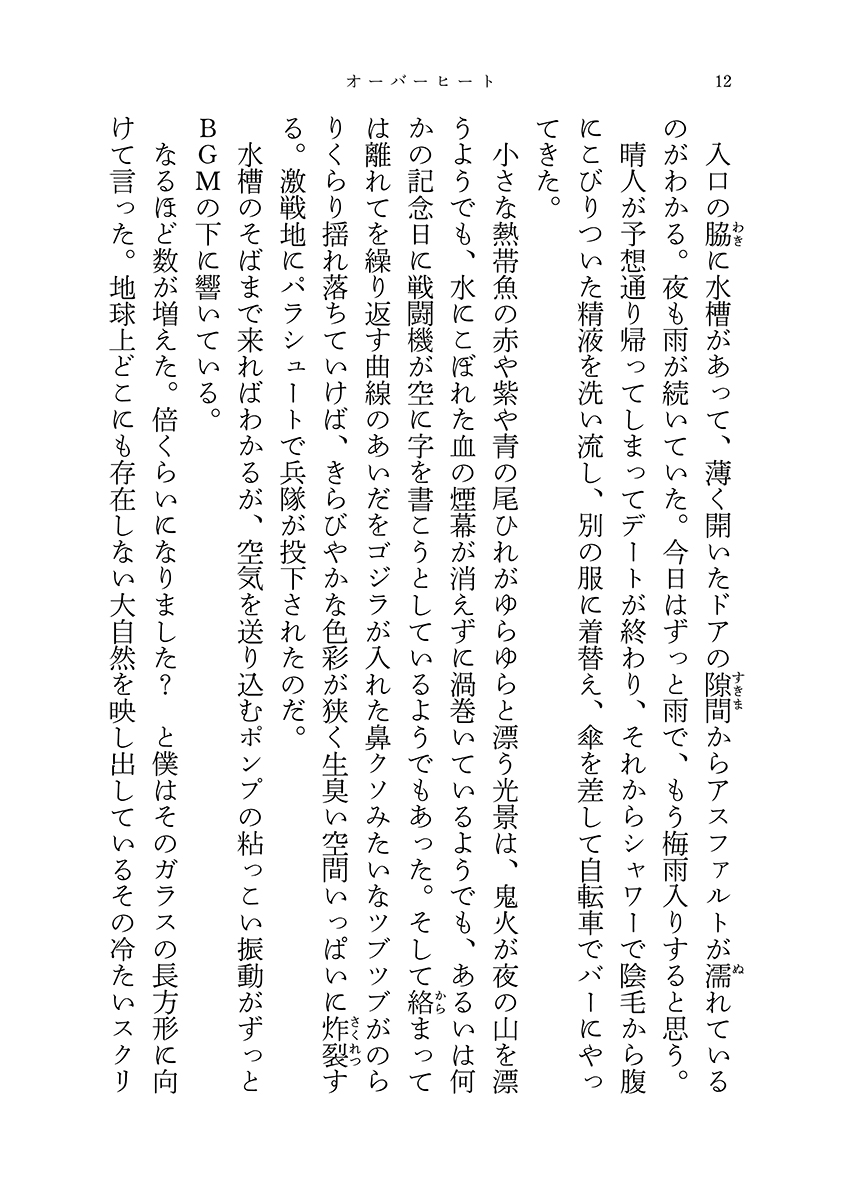 オーバーヒート
12
入口の脇に水槽があって、薄く開いたドアの隙間からアスファルトが濡れている
わき
すきま
ぬ
のがわかる。夜も雨が続いていた。今日はずっと雨で、もう梅雨入りすると思う。
晴人が予想通り帰ってしまってデートが終わり、それからシャワーで陰毛から腹
にこびりついた精液を洗い流し、別の服に着替え、傘を差して自転車でバーにやっ
てきた。
小さな熱帯魚の赤や紫や青の尾ひれがゆらゆらと漂う光景は、鬼火が夜の山を漂
うようでも、水にこぼれた血の煙幕が消えずに渦巻いているようでも、あるいは何
かの記念日に戦闘機が空に字を書こうとしているようでもあった。そして絡まって
から
は離れてを繰り返す曲線のあいだをゴジラが入れた鼻クソみたいなツブツブがのら
りくらり揺れ落ちていけば、きらびやかな色彩が狭く生臭い空間いっぱいに炸裂す
さくれつ
る。激戦地にパラシュートで兵隊が投下されたのだ。
水槽のそばまで来ればわかるが、空気を送り込むポンプの粘っこい振動がずっと
BGMの下に響いている。
なるほど数が増えた。倍くらいになりました?　と僕はそのガラスの長方形に向
けて言った。地球上どこにも存在しない大自然を映し出しているその冷たいスクリ